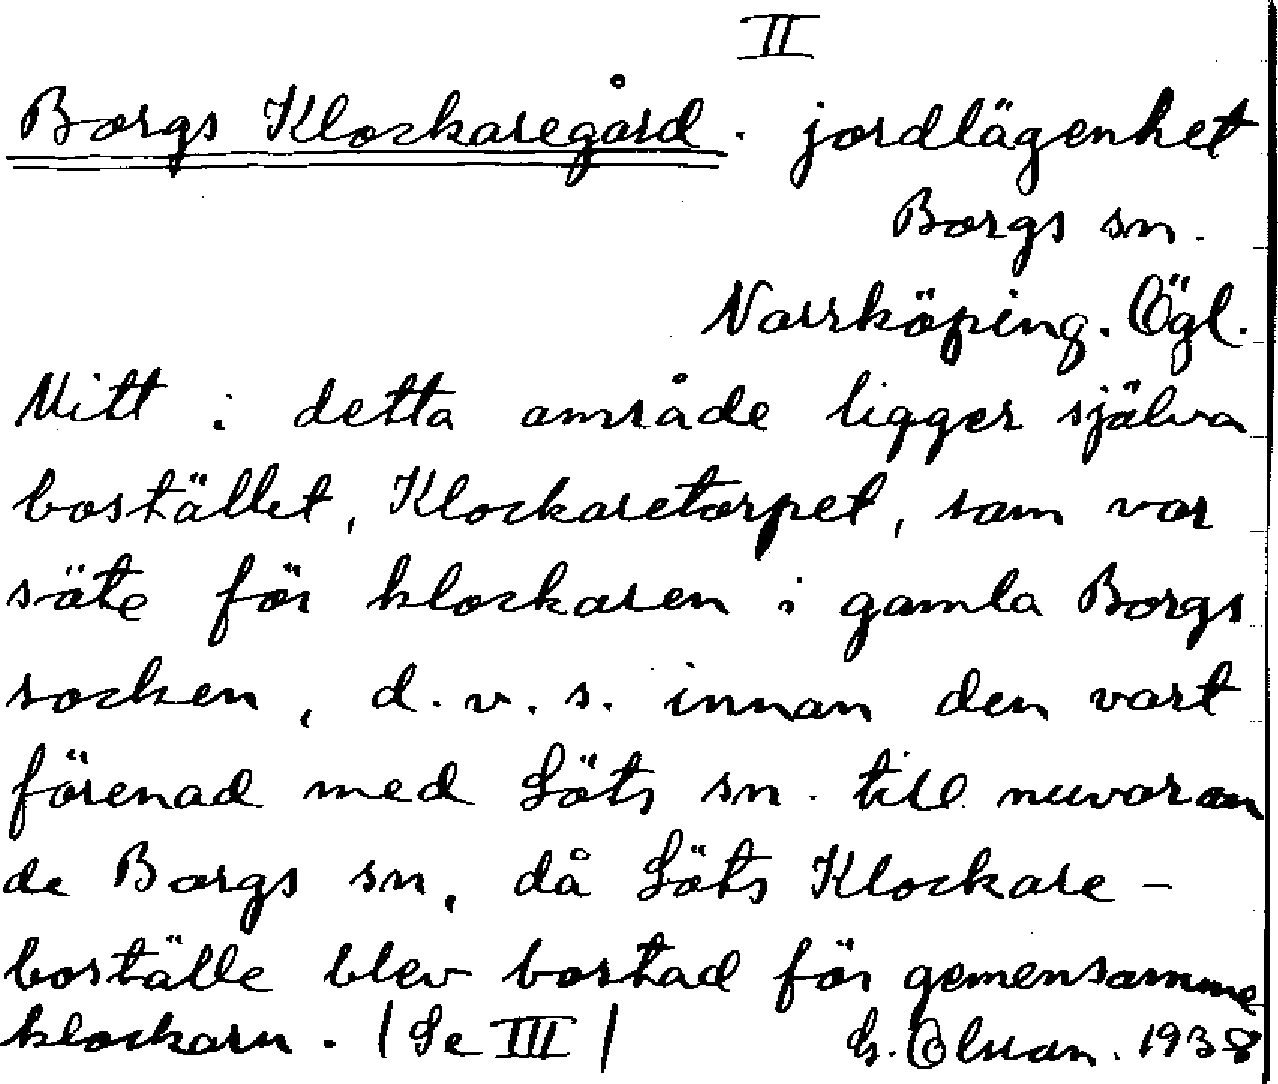 II
Borgs Klockaregård. jordlägenhet
Borgs sn.
Norrköping. Ögl.
Mitt i detta område ligger själva
bostället, Klockaretorpet, som var
säte för klockaren i gamla Borgs
socken, d.v.s. innan den vart
förenad med Löts sn. till nuvaran
de Borgs sn, då Löts Klockare-
boställe blev bostad för gemensamme
klockarn. /Se III/ G. Olsson. 1938